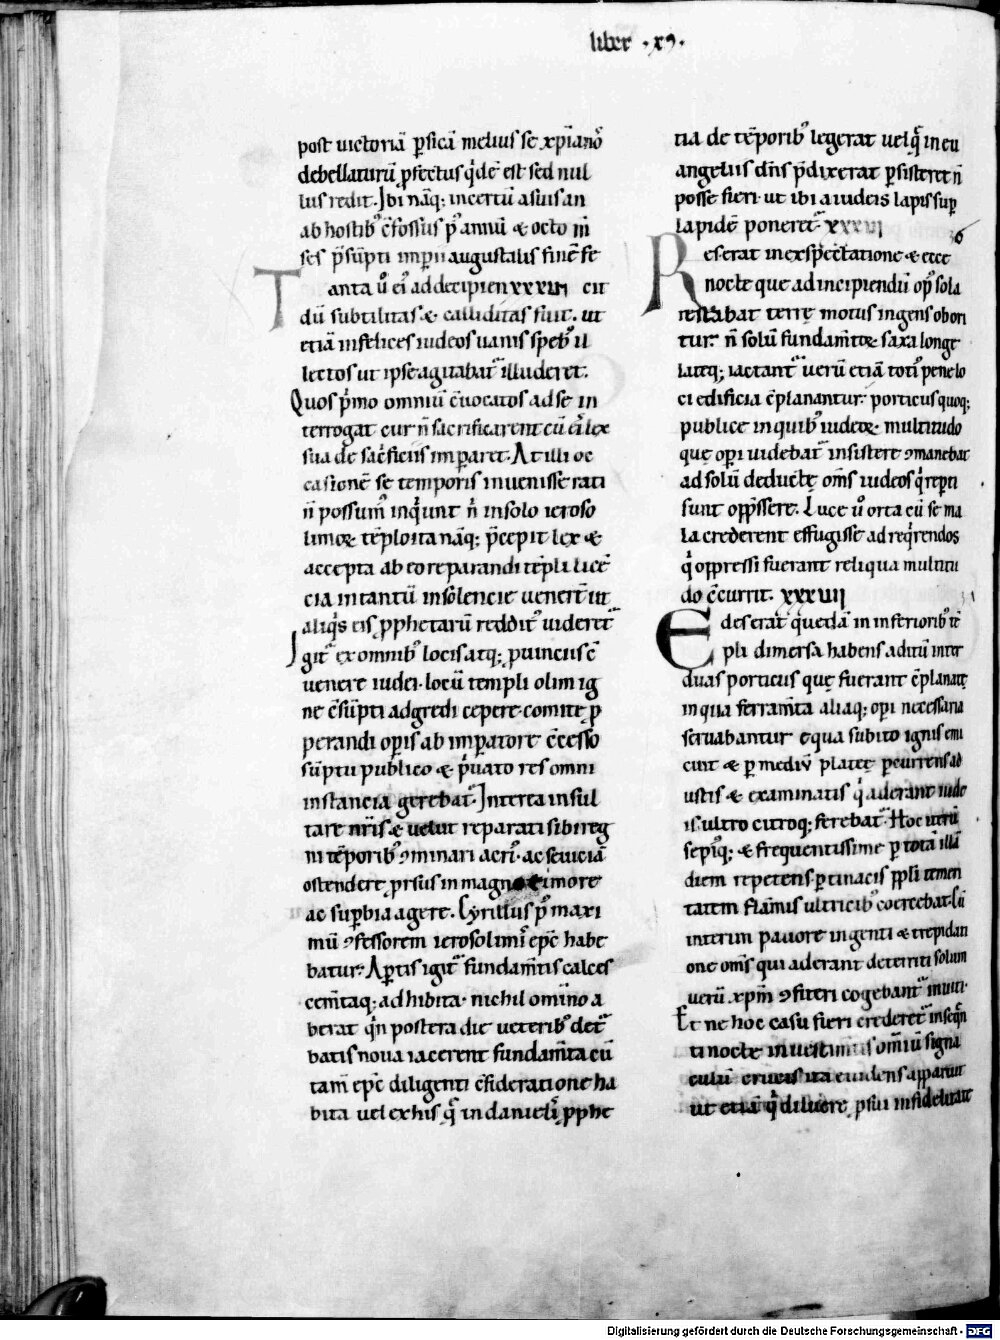 liber · xꝯ ·
post uictoriā ꝑsicā melius se xp̄ianoꝭ
debellaturū ꝓfectus q̇dē est sed nul
lus redit. Ibi nāq; incertū a suis an
ab hostib᾿ c̄fossus p᾿ annū & octo m̄
ses p̄sūpti imꝑii augustalis finē fe
Tanta u̇ ei᾿ ad decipien xxxvi cit
dū subtilitas & calliditas fuit. ut
etiā infelices iudeos uanis speb᾿ il
lectos ut ipse agitabat᾿ illuderet.
Quos ṗmo omniū c̄uocatos ad se in
terrogat cur n̄ sacrificarent cū ei᾿ lex
sua de saċficiis imꝑaret. At illi oc
casionē se temporis inuenisse rati
n̄ possum᾿ inq̇unt n̄ in solo ieroso
limoꝝ tēplo ita nāq; p̄cepit lex &
accepta ab eo reparandi tēpli licē
cia in tantū insolencie uenerē ut
aliq̇s eis ꝓphetarū reddit᾿ uideret᾿
Igit᾿ ex omnib᾿ locis atq; ꝓuinciis c̄
uenere iudei. locū templi olim ig
ne c̄sūpti adgredi cepere. comite ꝓ
perandi oꝑis ab imꝑatore c̄cesso
sūptu publico & ṗuato res omni
instancia gerebat᾿. Interea insul
tare nr̄is & uelut reparati sibi reg
ni tēporib᾿ ꝯminari acri᾿ ac seuiciā
ostendere ꝓrsus in magno timore
ac suꝑbia agere. Cyrillus p᾿ maxi
mū ꝯfessorem ierosolimi᾿ epc̄ habe
batur. Aꝑtis igit᾿ fundam̄tis calces
cem̄taq; adhibita. nichil omīno a
berat q̇n postera die ueterib᾿ det᾿
batis noua iacerent fundam̄ta cū
tam̄ epc̄ diligenti c̄sideratione ha
bita uel ex his q̄ in danielis ꝓphe
tia de tēporib᾿ legerat uel q̄ in eu
angeliis dn̄s p̄dixerat ꝑsisteret n̄
posse fieri. ut ibi a iudeis lapis suꝑ
lapidē poneret᾿ xxxvi
36
Res erat in exspectatione & ecce
nocte que ad incipiendū op᾿ sola
restabat terrę motus ingens obori
tur. n̄ solū fundam̄toꝝ saxa longe
lateq; iactant᾿ uerū etiā toti᾿ pene lo
ci edificia c̄planantur. porticus quoq;
publice in quib᾿ iudeoꝝ multitudo
quę oꝑi uidebat᾿ insistere ꝯmanebat
ad solū deductę om̄s iudeos q̇ reꝑti
sunt opp̄ssere. Luce u̇ orta cū se ma
la crederent effugisse ad req̇rendos
q̇ oppressi fuerant reliqua multitu
do c̄currit. xxxvii
Edes erat quedā in inferiorib᾿ tē
pli dimersa habens aditū inter
duas porticus quę fuerant c̄planatę
in qua ferram̄ta aliaq; oꝑi necessaria
seruabantur e qua subito ignis emi
cuit & ꝑ mediū platee ꝑcurrens ad
ustis & examinatis q̇ aderant iude
is ultro citroq; ferebat᾿. Hoc iterū
sepi᾿q; & frequentissime ꝑ totā illā
diem repetens ꝑtinacis ppl̄i temeri
tatem flāmis ultricib᾿ coercebat. Cū
interim pauore ingenti & trepidati
one om̄s qui aderant deteriti solum
uerū xp̄m ꝯfiteri cogebant᾿ inuiti.
Et ne hoc casu fieri crederet᾿ in seq̄n
ti nocte in uestimentis omīu signa
culū crucis ita euidens apparuit
ut etiā q̇ diluere ꝓ sui infidelitate